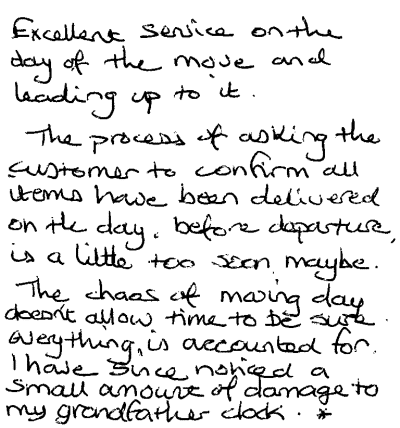 Excellent service on the
day of the move and
leading up to it.
The process of asking the
customer to confirm all
items have been delivered
on the day, before departure,
is a little too soon maybe.
The chaos of moving day
doesn't allow time to be sure
everything, is accounted for.
I have since noticed a
small amount of damage to
my grandfather clock. *